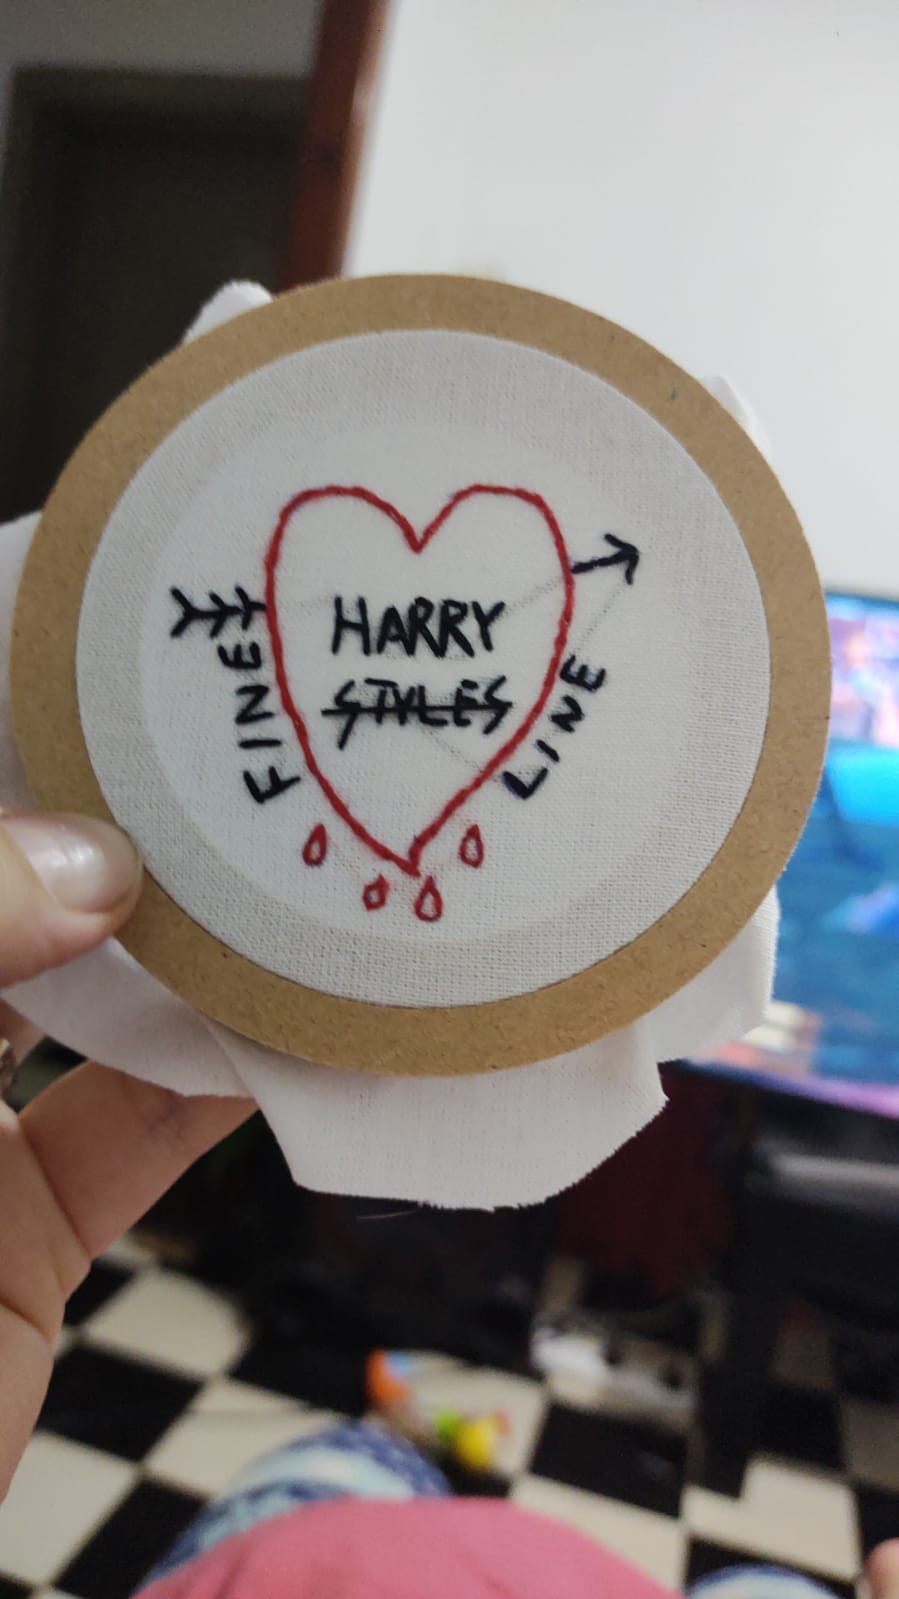 HARRY
STYLES
FINE
LINE